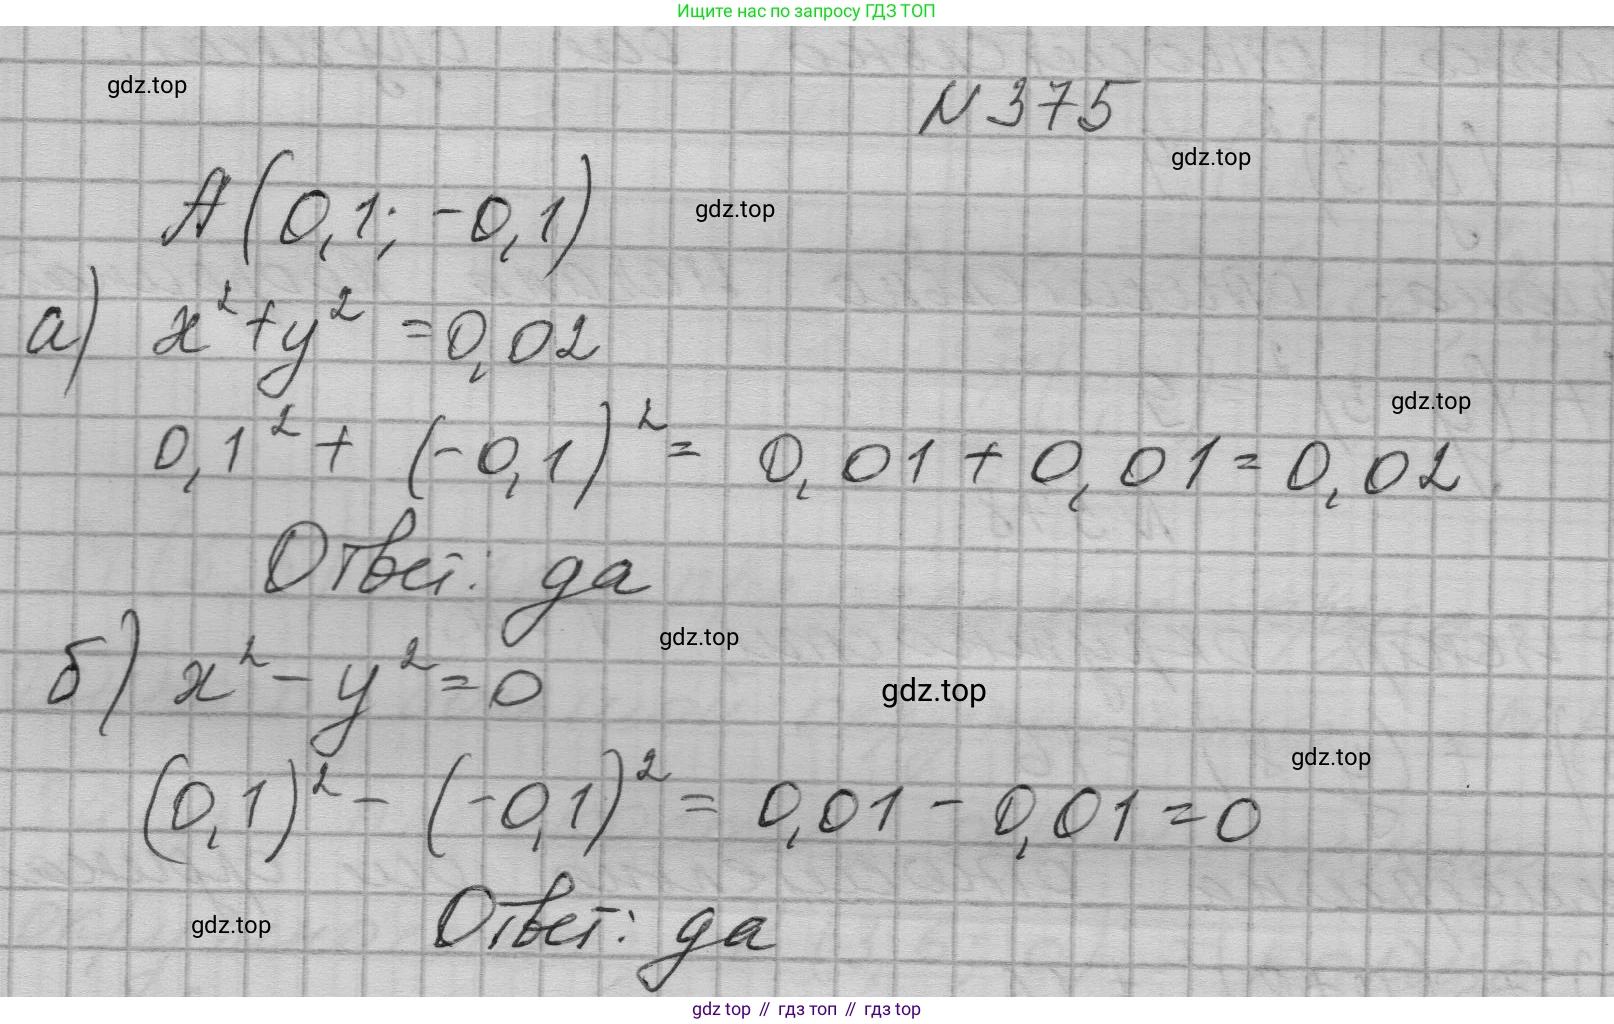 Ищите нас по запросу ГДЗ ТОП
gdz.top
N 375
gdz.top
A(0,1; -0,1)
gdz.top
а) x²+y² =0,02
gdz.top
0,1² + (-0,1)² = 0,01 + 0,01 = 0,02
Ответ: да
gdz.top
б) x² - y² = 0
gdz.top
gdz.top
(0,1)² - (-0,1)² = 0,01 - 0,01 = 0
gdz.top
Ответ: да
gdz top // гдз топ // гдз top